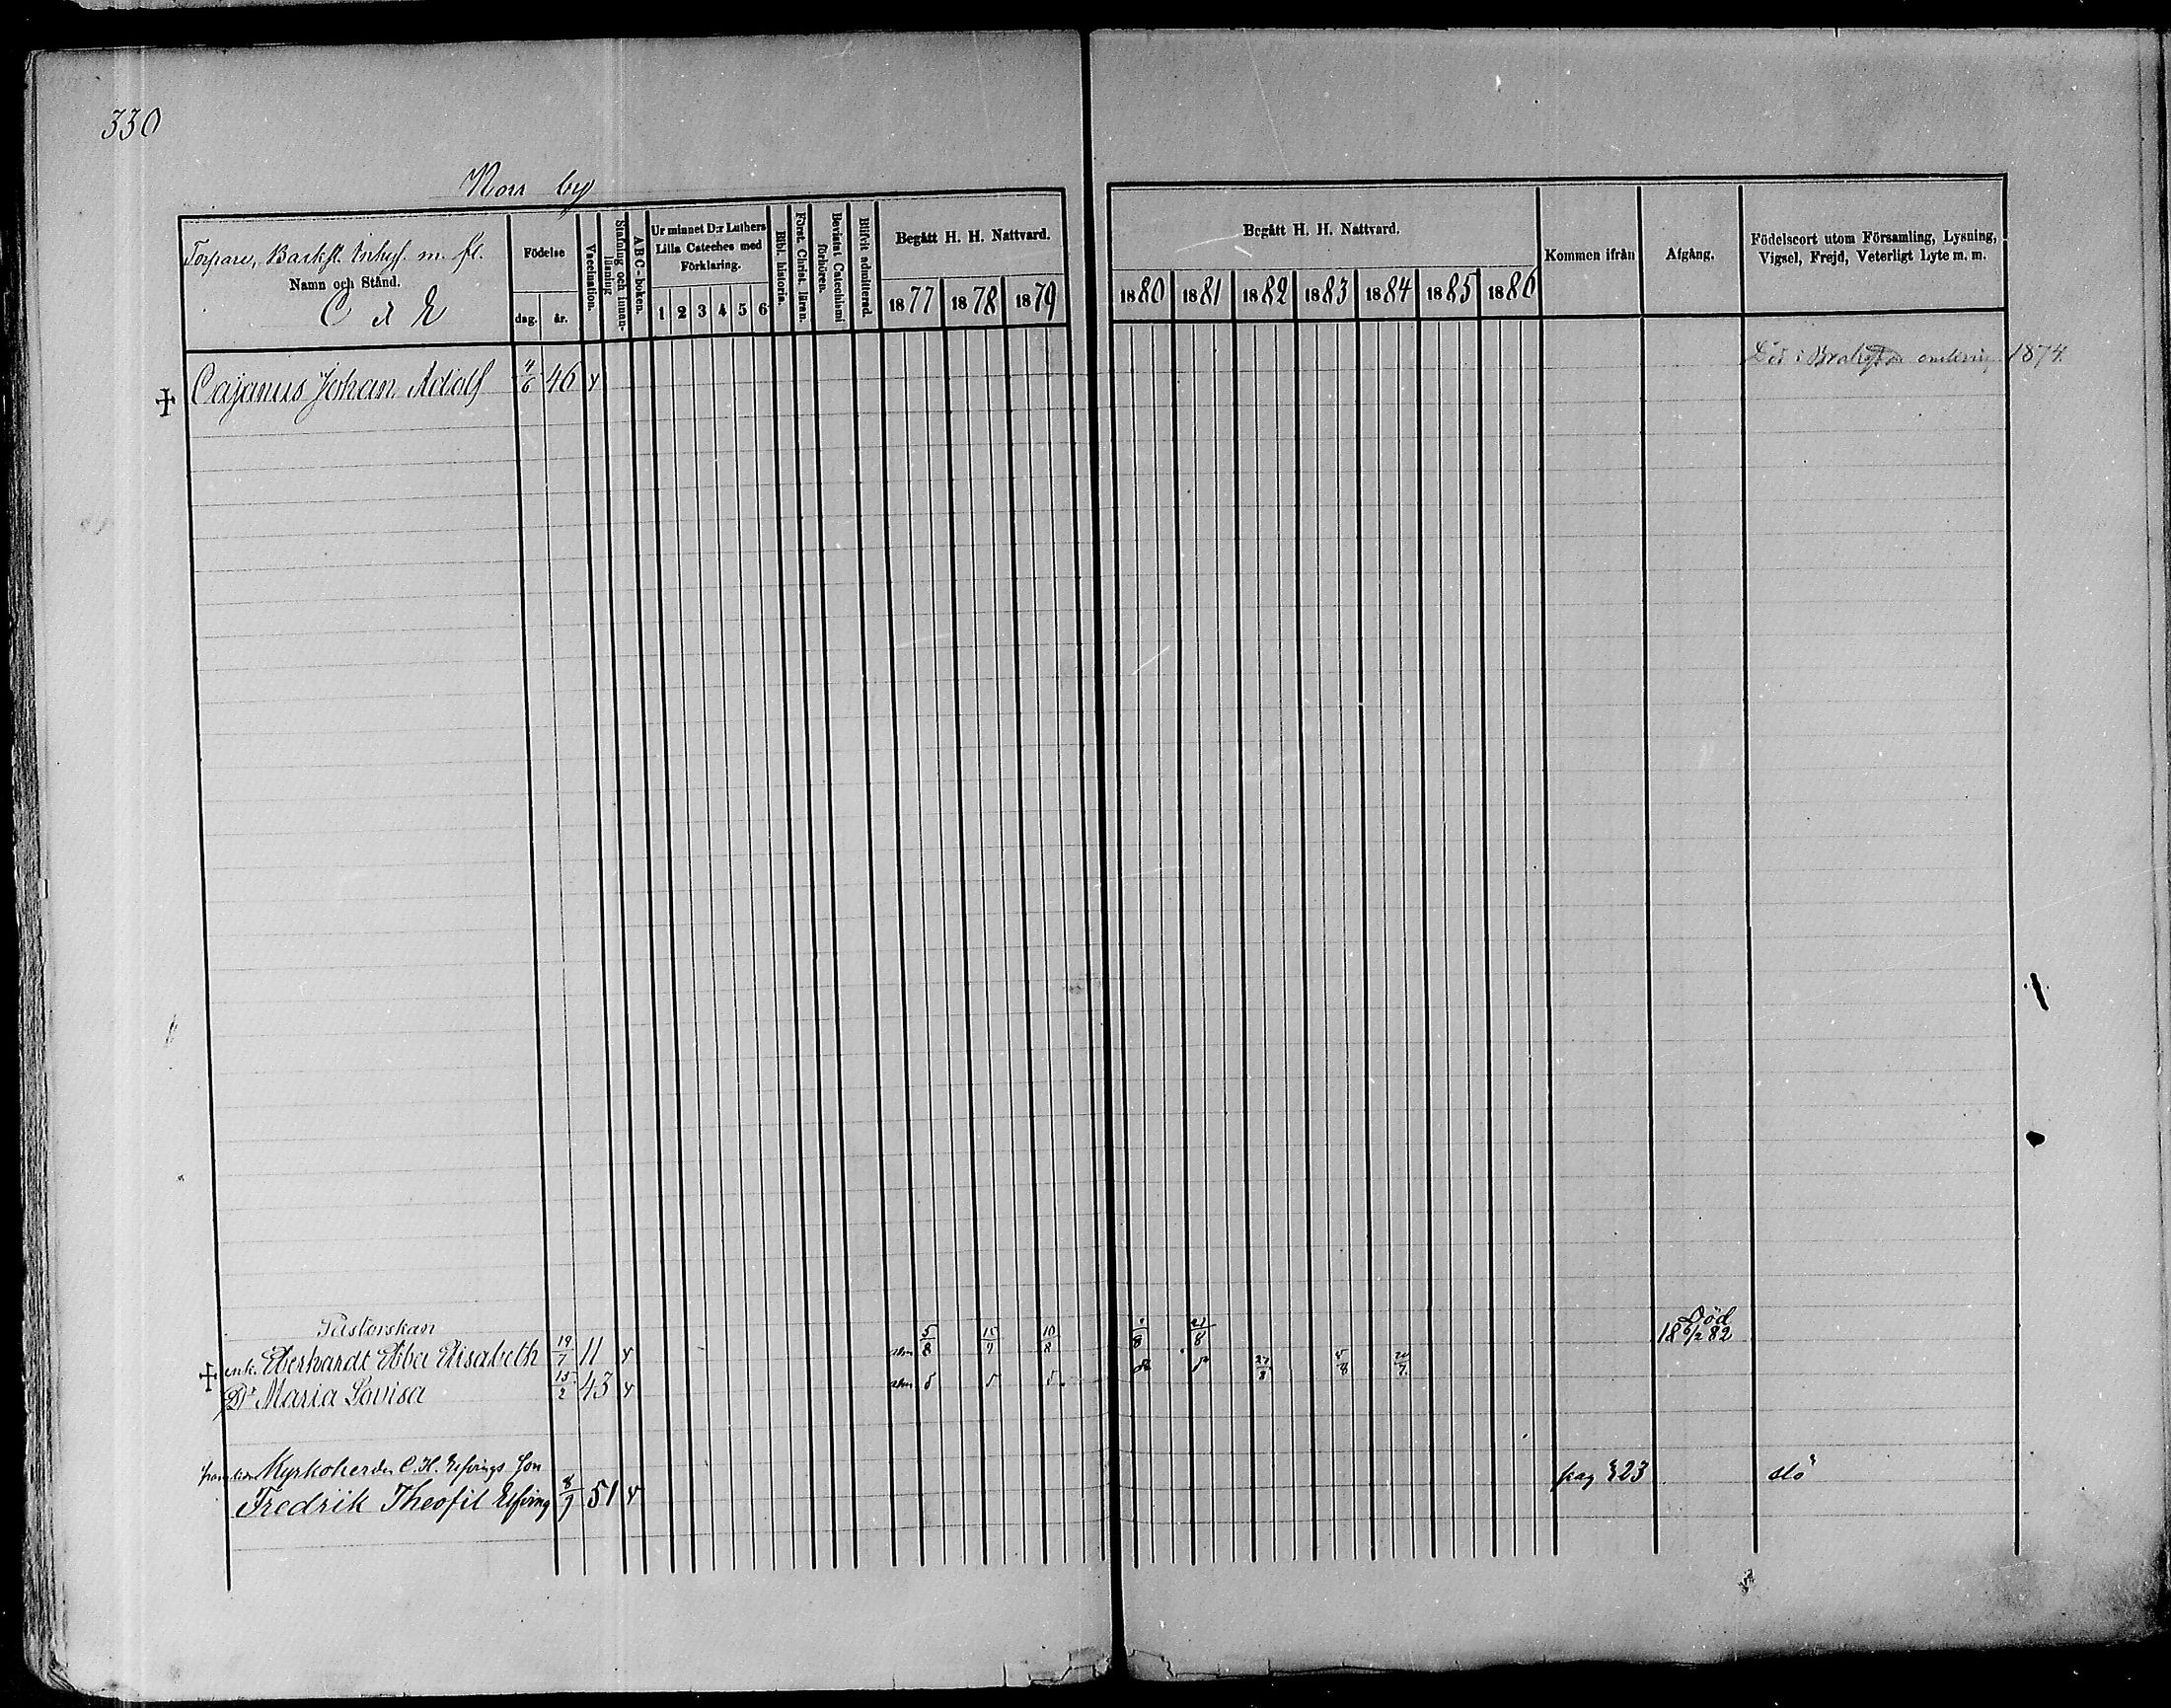 330
Norr by
Torpare, Backst. Inhys. m. fl.
Namn och Stånd.
C d E
Födelse
dag. år.
Vaccination.
Stafning och innan-
läsning
ABC-boken.
Ur minnet D:r Luthers
Lilla Cateches med
Förklaring.
1 2 3 4 5 6
Bibl. historia.
Först. Christ. läran.
Bevistat Catechismi
förhören.
Blifvit admitterad.
Begått H. H. Nattvard.
1877 1878 1879
Begått H. H. Nattvard.
1880 1881 1882 1883 1884 1885 1886
Kommen ifrån
Afgång.
Födelseort utom Församling, Lysning,
Vigsel, Frejd, Veterligt Lyte m. m.
Cajanus Johan Adolf 4/6 46 v Död i 1874
Pastorskan Död
enk. Eberhardt Ebba Elisabeth 19/7 11 v 5/8 15/9 10/8 /8 21/8 18 6/2 82
Dr Maria Lovisa 15/2 43 v 27/8 5/8 20/7
Kyrkoherden C. H. Elfvings Son
Fredrik Theofil Elfving 8/9 51 v pag 323 slö